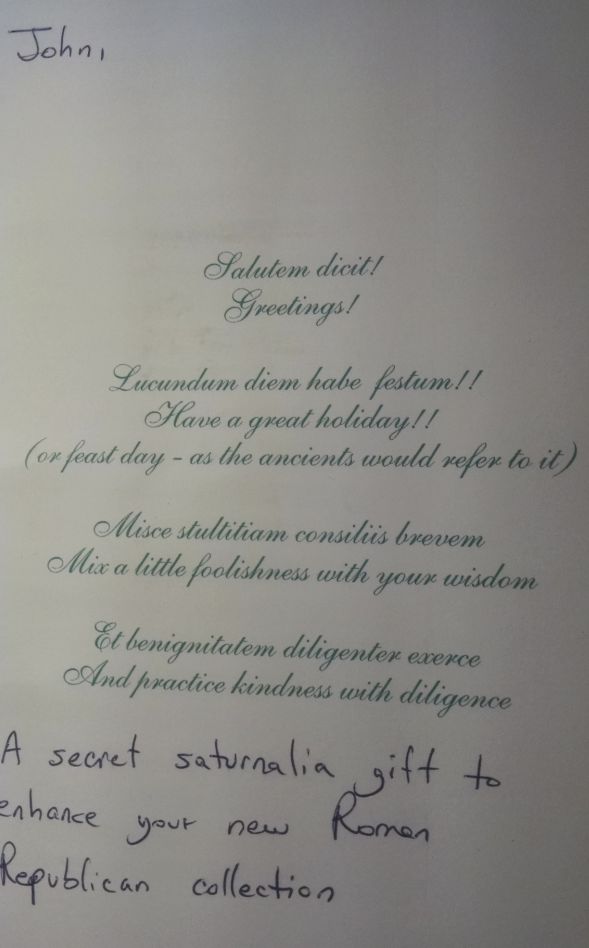 John,
Salutem dicit!
Greetings!
Iucundum diem habe festum!!
Have a great holiday!!
(or feast day - as the ancients would refer to it)
Misce stultitiam consiliis brevem
Mix a little foolishness with your wisdom
Et benignitatem diligenter exerce
And practice kindness with diligence
A secret saturnalia gift to
enhance your new Roman
Republican collection